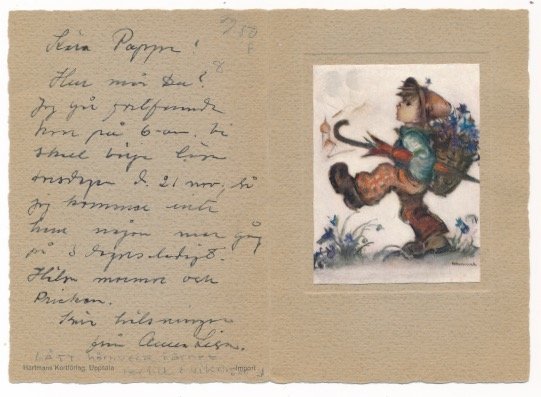 Kära Pappa!
Hur mår Du?
Jag går fortfarande
kvar på 6-an. Vi
skall börja läsa
onsdagen d. 21 nov, så
jag kommer inte
hem någon mer gång
på 3 dagars ledigt.
Hälsa mamma och
Prickan.
Kära hälsningar
från Anna Lisa.
Hartmans Kortförlag, Uppsala
Import